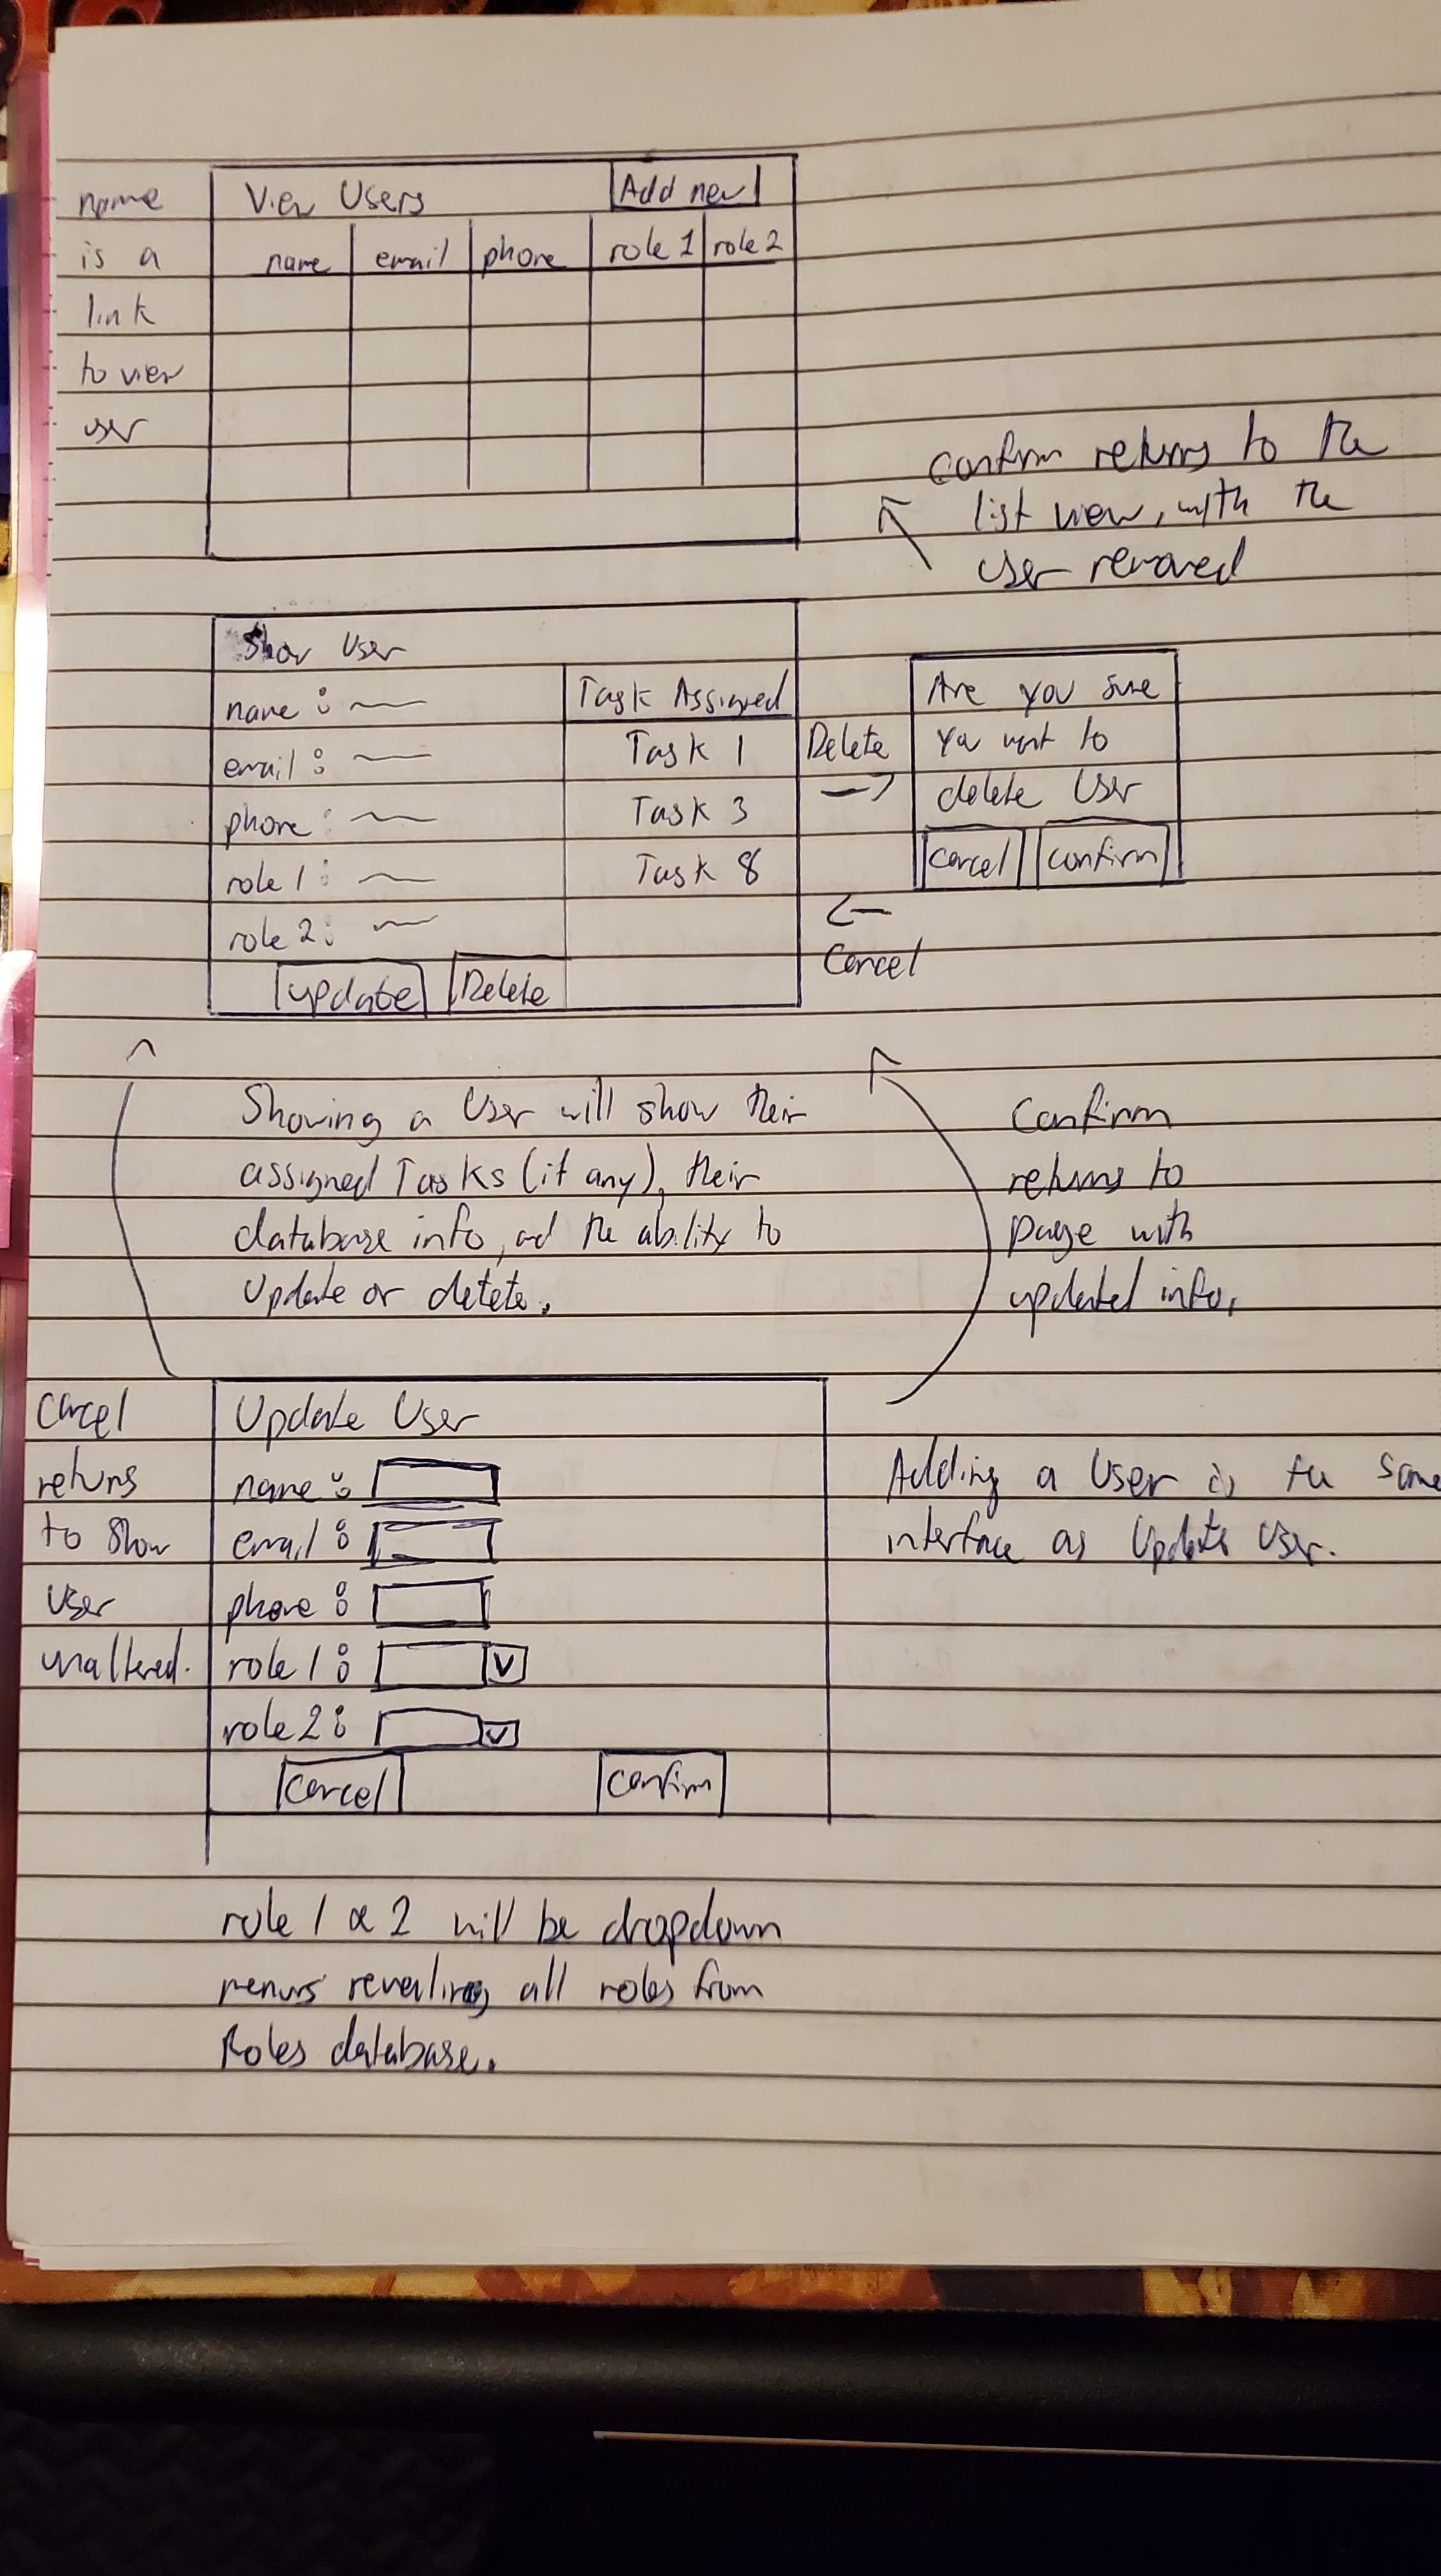 name
is a
link
to view
user
View Users
Add new
name email phone role 1 role 2
Confirm returns to the
list view, with the
User removed
Show User
name :
email :
phone :
role 1 :
role 2 :
Update Delete
Task Assigned
Task 1
Task 3
Task 8
Delete
Are you sure
you want to
delete User
Cancel Confirm
Cancel
Showing a User will show their
assigned Tasks (if any), their
database info, and the ability to
Update or delete.
Confirm
returns to
page with
updated info.
Cancel
returns
to Show
User
unaltered.
Update User
name :
email :
phone :
role 1 : V
role 2 : V
Cancel Confirm
Adding a User is the same
interface as Update User.
role 1 & 2 will be dropdown
menus revealing all roles from
Roles database.